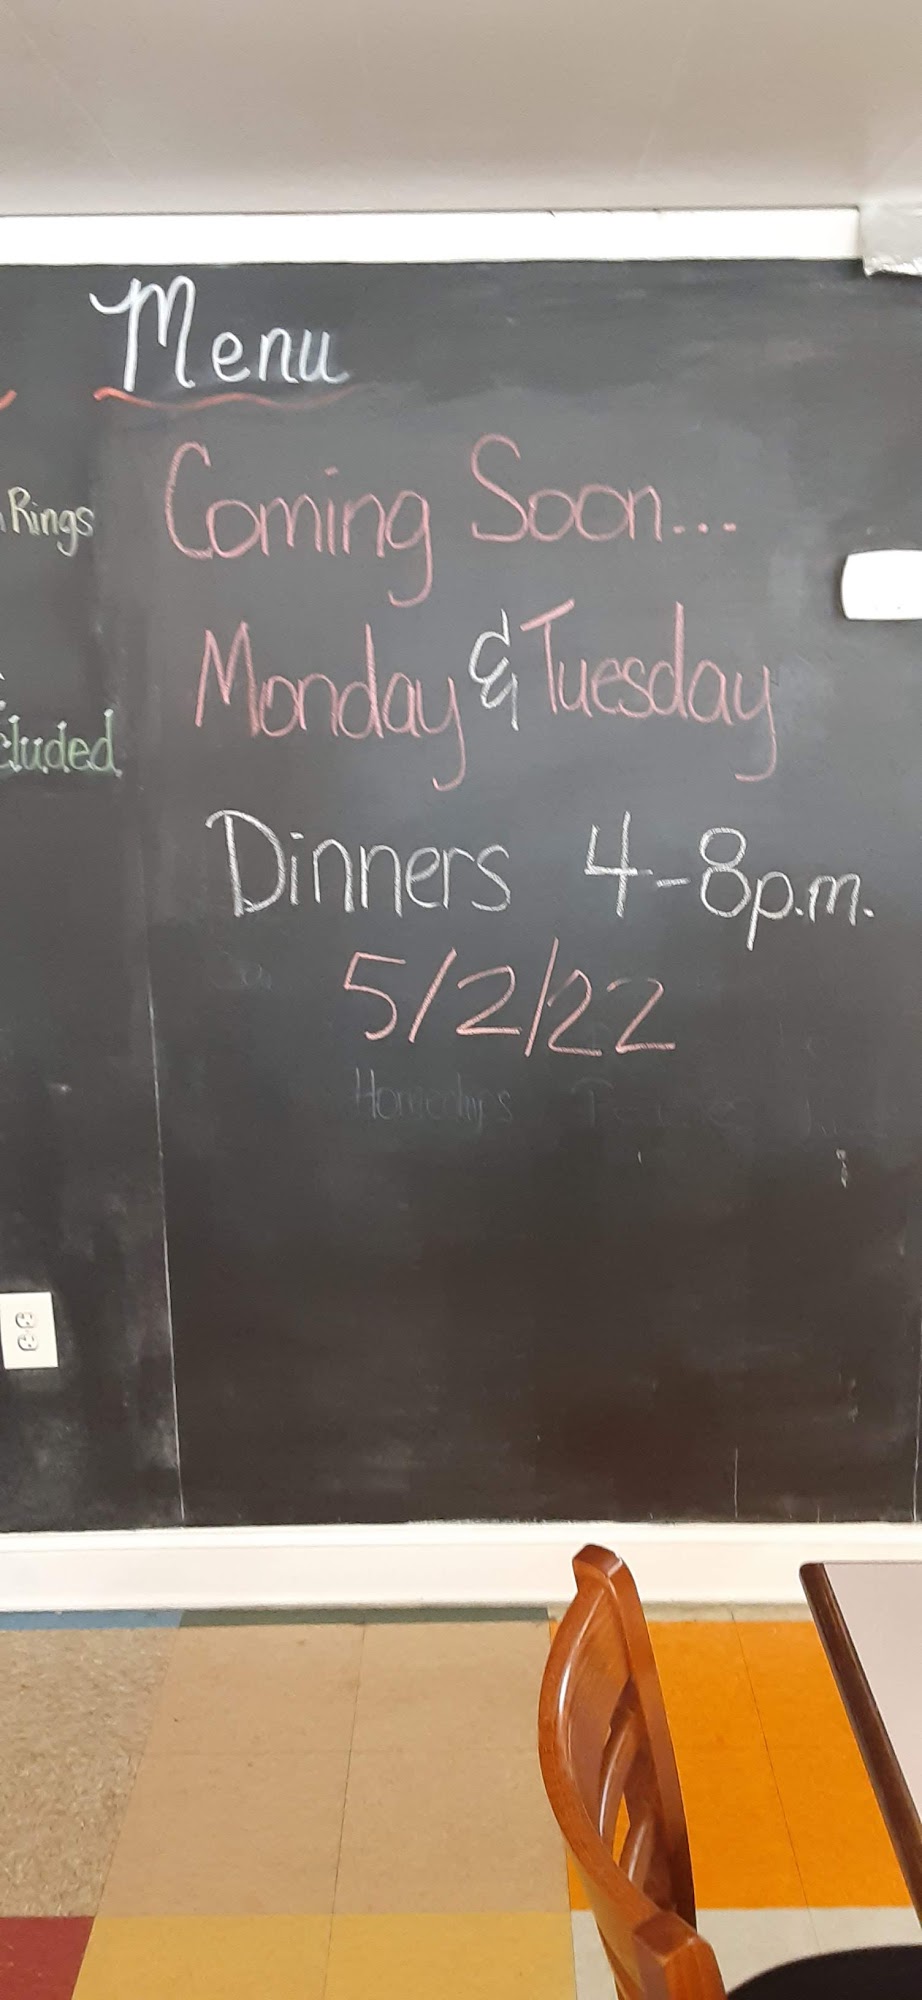 Menu
Rings
cluded
Coming Soon...
Monday & Tuesday
Dinners 4-8p.m.
5/2/22
Homechips